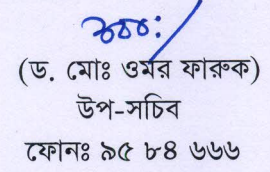 (ড. মোঃ ওমর ফারুক)
উপ-সচিব
ফোনঃ ৯৫ ৮৪ ৬৬৬